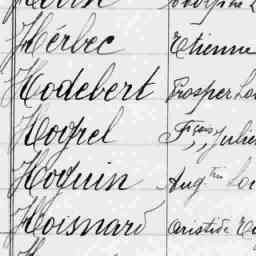 Hérbec Etienne
Hodebert Prosper
Hogrel Fçois Julien
Hoguin Aug.tin
Hoisnard Aristide